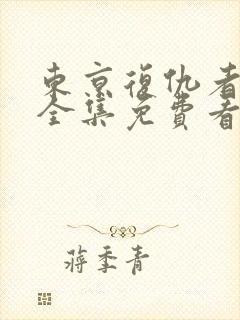 東京復仇者
全集免費看
蔣季青